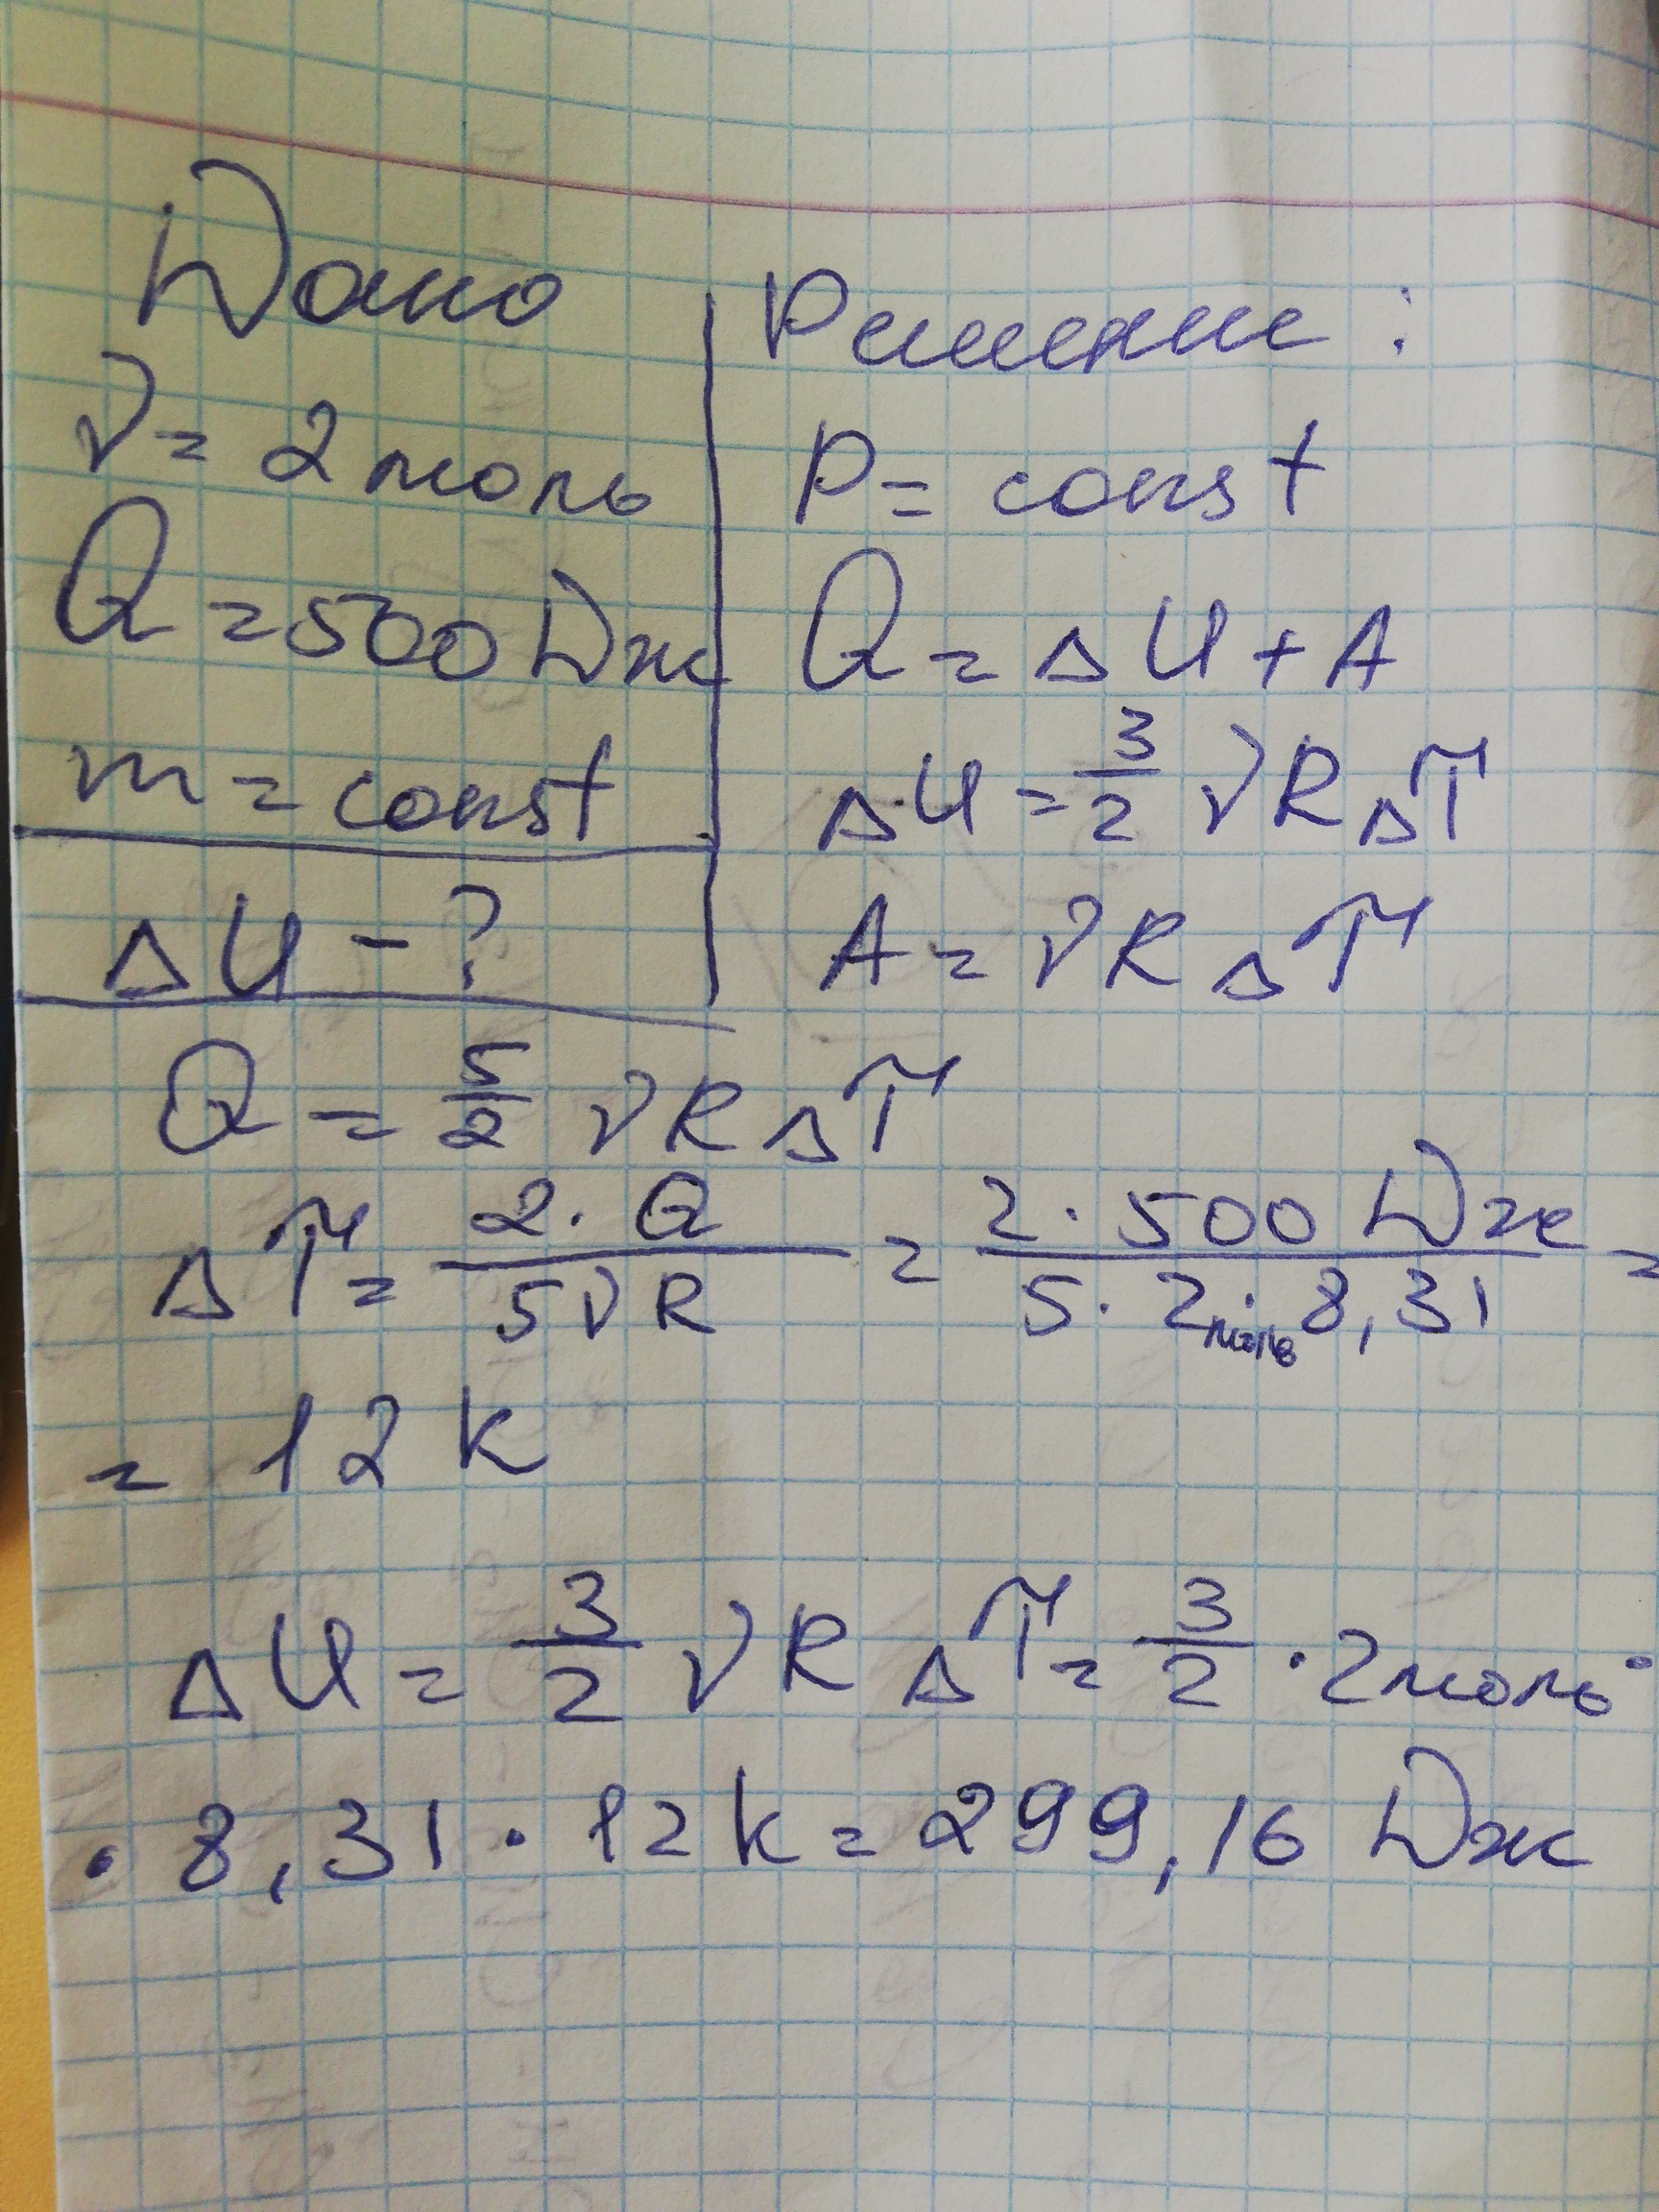 Дано
ν = 2 моль
Q = 500 Дж
m = const
ΔU - ?
Решение :
P = const
Q = ΔU + A
ΔU = 3/2 νRΔT
A = νRΔT
Q = 5/2 νRΔT
ΔT = 2·Q / 5νR = 2·500 Дж / 5·2моль·8,31 =
= 12 K
ΔU = 3/2 νRΔT = 3/2 · 2моль ·
· 8,31 · 12 K = 299,16 Дж